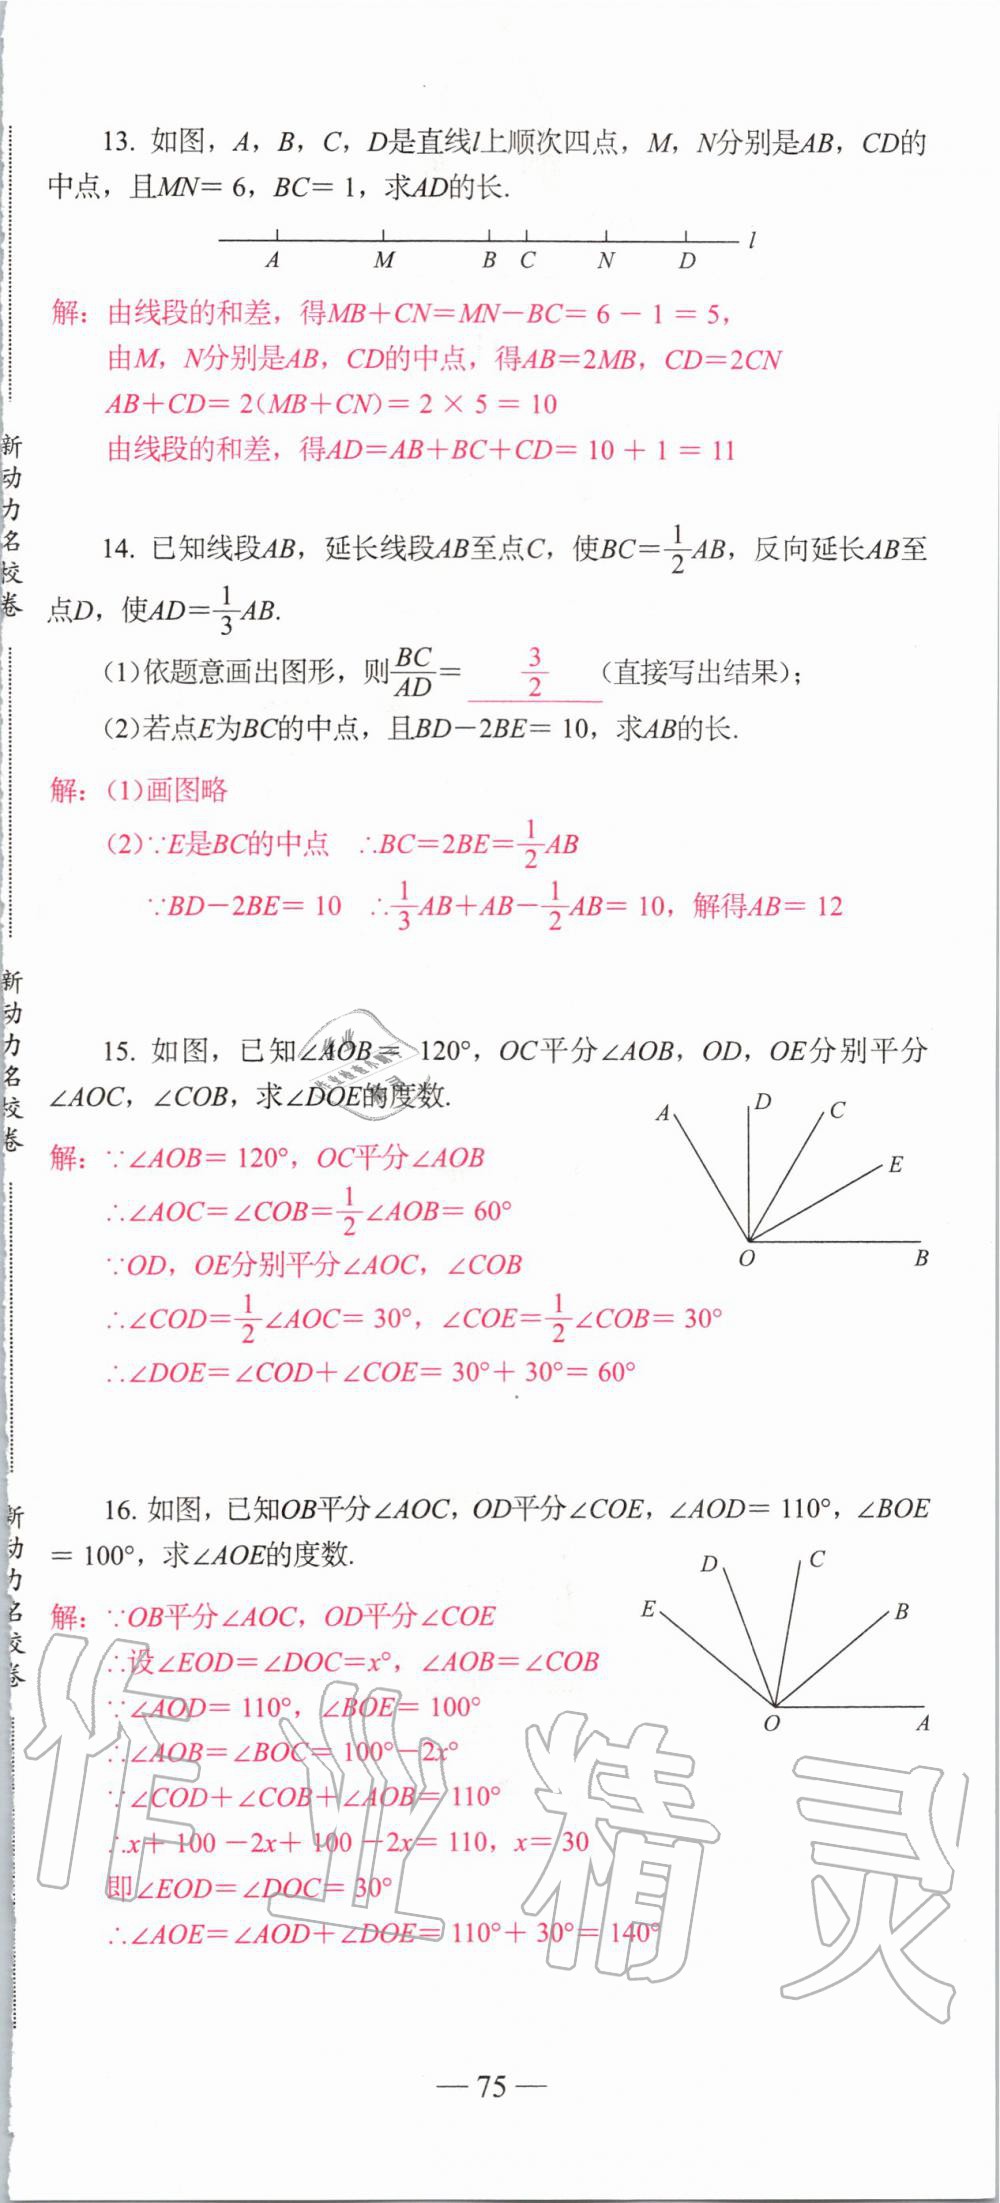 13. 如图，A，B，C，D是直线l上顺次四点，M，N分别是AB，CD的
中点，且MN= 6，BC= 1，求AD的长.
A M B C N D l
解：由线段的和差，得MB+CN=MN-BC= 6 - 1 = 5，
由M，N分别是AB，CD的中点，得AB=2MB，CD=2CN
AB+CD= 2(MB+CN)= 2 × 5 = 10
由线段的和差，得AD=AB+BC+CD= 10 + 1 = 11
14. 已知线段AB，延长线段AB至点C，使BC=1/2AB，反向延长AB至
点D，使AD=1/3AB.
(1)依题意画出图形，则BC/AD= 3/2 (直接写出结果)；
(2)若点E为BC的中点，且BD-2BE= 10，求AB的长.
解：(1)画图略
(2)∵E是BC的中点 ∴BC=2BE=1/2AB
∵BD-2BE= 10 ∴1/3AB+AB-1/2AB= 10，解得AB= 12
15. 如图，已知∠AOB= 120°，OC平分∠AOB，OD，OE分别平分
∠AOC，∠COB，求∠DOE的度数.
A D C E O B
解：∵∠AOB= 120°，OC平分∠AOB
∴∠AOC=∠COB=1/2∠AOB= 60°
∵OD，OE分别平分∠AOC，∠COB
∴∠COD=1/2∠AOC= 30°，∠COE=1/2∠COB= 30°
∴∠DOE=∠COD+∠COE= 30°+ 30°= 60°
16. 如图，已知OB平分∠AOC，OD平分∠COE，∠AOD= 110°，∠BOE
= 100°，求∠AOE的度数.
E D C B O A
解：∵OB平分∠AOC，OD平分∠COE
∴设∠EOD=∠DOC=x°，∠AOB=∠COB
∵∠AOD= 110°，∠BOE= 100°
∴∠AOB=∠BOC= 100°-2x°
∵∠COD+∠COB+∠AOB= 110°
∴x+ 100 -2x+ 100 -2x= 110，x= 30
即∠EOD=∠DOC= 30°
∴∠AOE=∠AOD+∠DOE= 110°+ 30°= 140°
— 75 —
新动力名校卷
新动力名校卷
新动力名校卷
作业精灵